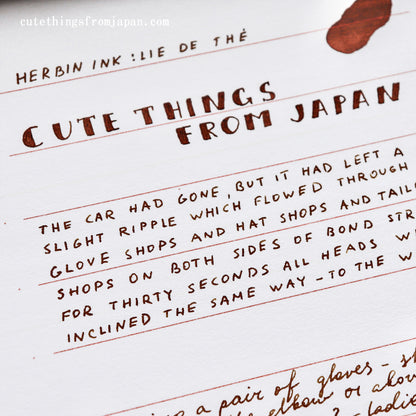 cutethingsfromjapan.com
HERBIN INK : LIE DE THÉ
CUTE THINGS
FROM JAPAN
THE CAR HAD GONE, BUT IT HAD LEFT A
SLIGHT RIPPLE WHICH FLOWED THROUGH
GLOVE SHOPS AND HAT SHOPS AND
SHOPS ON BOTH SIDES OF BOND
FOR THIRTY SECONDS ALL HEADS
INCLINED THE SAME WAY – TO THE
a pair of gloves –
the elbow or